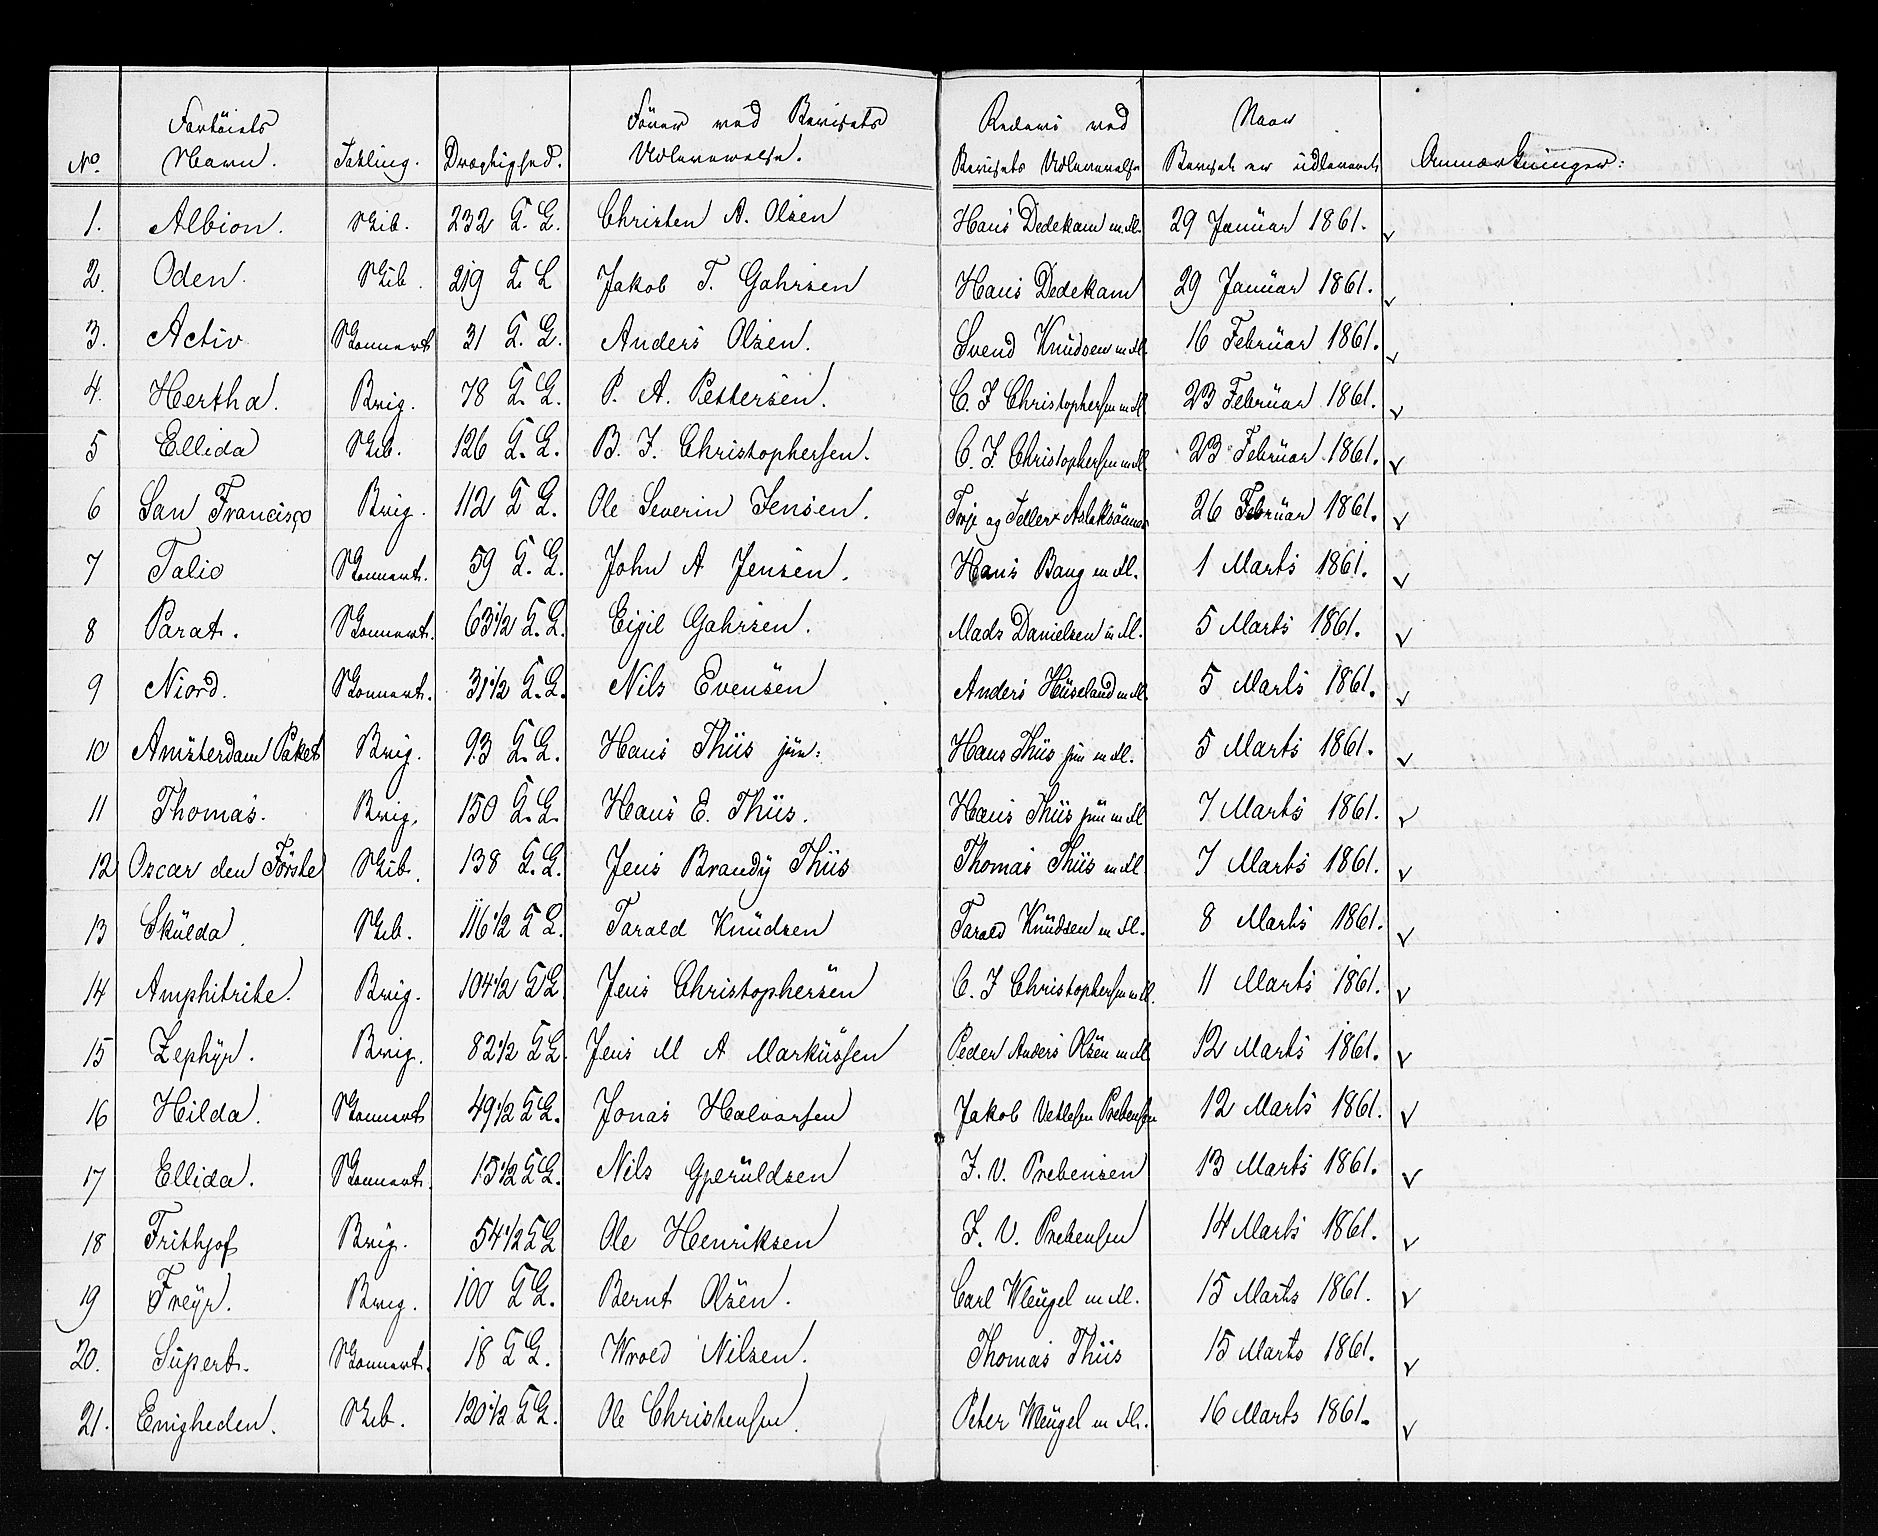 No. Fartöiets Navn. Takling. Drægtighed. Förer ved Bevisets Udleverelse. Rederi ved Bevisets Udleverelse Naar Beviset er udleveret Anmærkninger:
1. Albion. Skib. 232 T. L. Christen A. Olsen Hans Dedekam m. fl. 29 Januar 1861. ✓
2. Oden. Skib. 219 T. L Jakob T. Gahrsen Hans Dedekam 29 Januar 1861. ✓
3. Activ Skonnert 31 T. L. Anders Olsen. Svend Knudsen m fl. 16 Februar 1861. ✓
4. Hertha. Brig. 78 T. L. P. A. Pettersen. C. F Christophersen m fl 23 Februar 1861. ✓
5 Ellida Skib. 126 T. L. B. F. Christophersen. C. F. Christophersen m fl 23 Februar 1861. ✓
6 San Francisco Brig. 112 T L. Ole Severin Jensen. Terje og Tellef Aslaksönner 26 Februar 1861. ✓
7 Talio Skonnert. 59 T. L. John A Jensen. Hans Bang m fl. 1 Marts 1861. ✓
8 Parat. Skonnert. 63½ T. L. Eigil Gahrsen. Mads Danielsen m fl. 5 Marts 1861. ✓
9 Niord. Skonnert. 31½ T. L. Nils Evensen Anders Huseland m fl. 5 Marts 1861. ✓
10 Amsterdam Paket Brig. 93 T. L. Hans Thiis jun: Hans Thiis jun m fl. 5 Marts 1861. ✓
11 Thomas. Brig. 150 T. L. Hans E. Thiis. Hans Thiis jun m fl 7 Marts 1861. ✓
12 Oscar den Förste Skib. 138 T. L. Jens Brandy Thiis Thomas Thiis m fl 7 Marts 1861. ✓
13 Skulda Skib. 116½ T L. Tarald Knudsen Tarald Knudsen m fl. 8 Marts 1861. ✓
14 Amphitrite. Brig. 104½ T L Jens Christophersen C. F Christophersen m fl. 11 Marts 1861. ✓
15 Zephyr. Brig. 82½ T L. Jens M A Markussen Peder Anders Olsen m fl 12 Marts 1861. ✓
16 Hilda. Skonnert 49½ T L. Jonas Halvorsen Jakob Vetlesen Prebensen 12 Marts 1861. ✓
17 Ellida. Skonnert. 15½ T L. Nils Gjeruldsen J. V. Prebensen 13 Marts 1861. ✓
18 Frithjof Brig. 54½ T L Ole Henriksen J. V. Prebensen 14 Marts 1861. ✓
19 Freyr. Brig. 100 T L. Bernt Olsen. Carl Wleugel m fl. 15 Marts 1861. ✓
20. Superb. Skonnert. 18 T L. Wrold Nilsen. Thomas Thiis 15 Marts 1861. ✓
21. Enigheden. Skib. 120½ T L. Ole Christensen. Peter Wleugel m fl. 16 Marts 1861. ✓